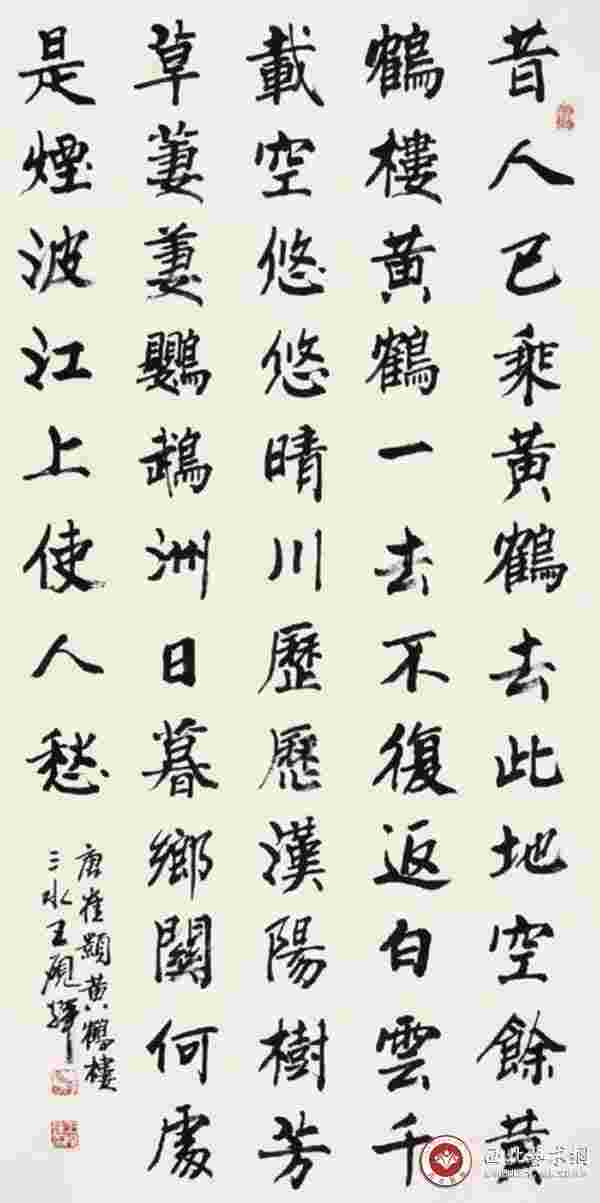 昔人已乘黄鶴去此地空餘黄
鶴樓黄鶴一去不復返白雲千
載空悠悠晴川歷歷漢陽樹芳
草萋萋鸚鵡洲日暮鄉關何處
是煙波江上使人愁
唐崔顥黄鶴樓
三水王